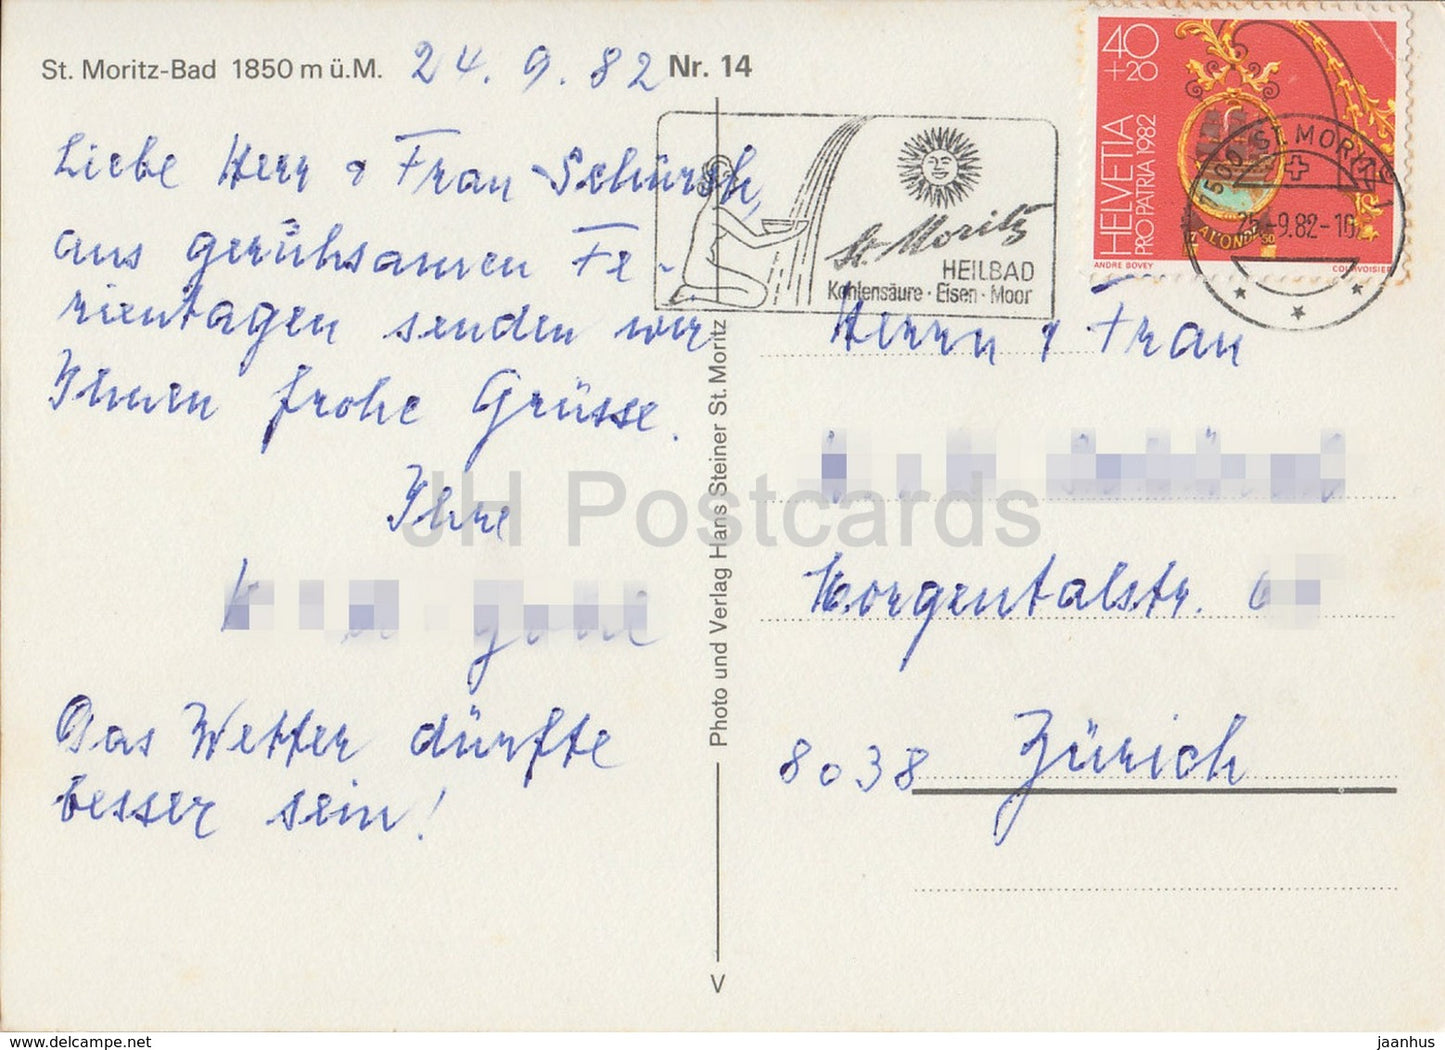 St. Moritz-Bad 1850 m ü.M. 24. 9. 82 Nr. 14
Liebe Herr & Frau Schürsch,
aus geruhsamen Fe-
rientagen senden wir
Ihnen frohe Grüsse.
Ihre
Das Wetter dürfte
besser sein!
Photo und Verlag Hans Steiner St. Moritz
V
St. Moritz
HEILBAD
Kohlensäure · Eisen · Moor
40
+20
HELVETIA
PRO PATRIA 1982
A L'ONDE
ANDRE BOVEY
COURVOISIER
7500 ST. MORITZ 1
25.-9.82-10
Herrn & Frau
Morgentalstr.
8038 Zürich
JH Postcards
jaanhus @ HipPostcard.com